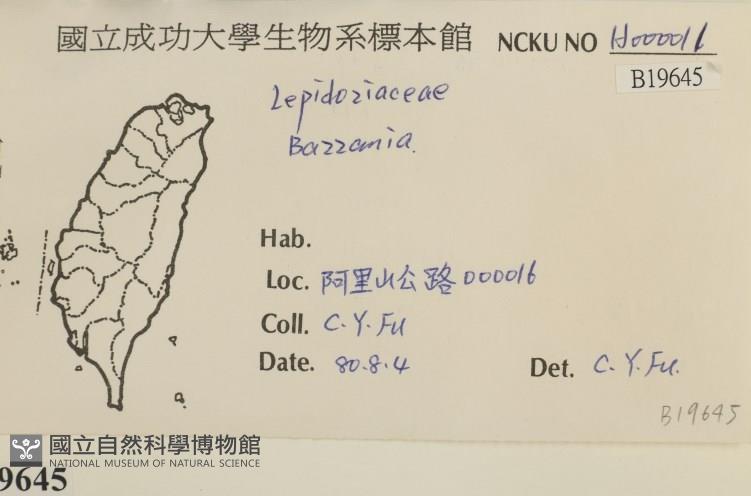 國立成功大學生物系標本館 NCKU NO H000016
B19645
Lepidoziaceae
Bazzania.
Hab.
Loc. 阿里山公路 000016
Coll. C.Y.Fu
Date. 80.8.4 Det. C.Y.Fu.
B19645
國立自然科學博物館
NATIONAL MUSEUM OF NATURAL SCIENCE
9645